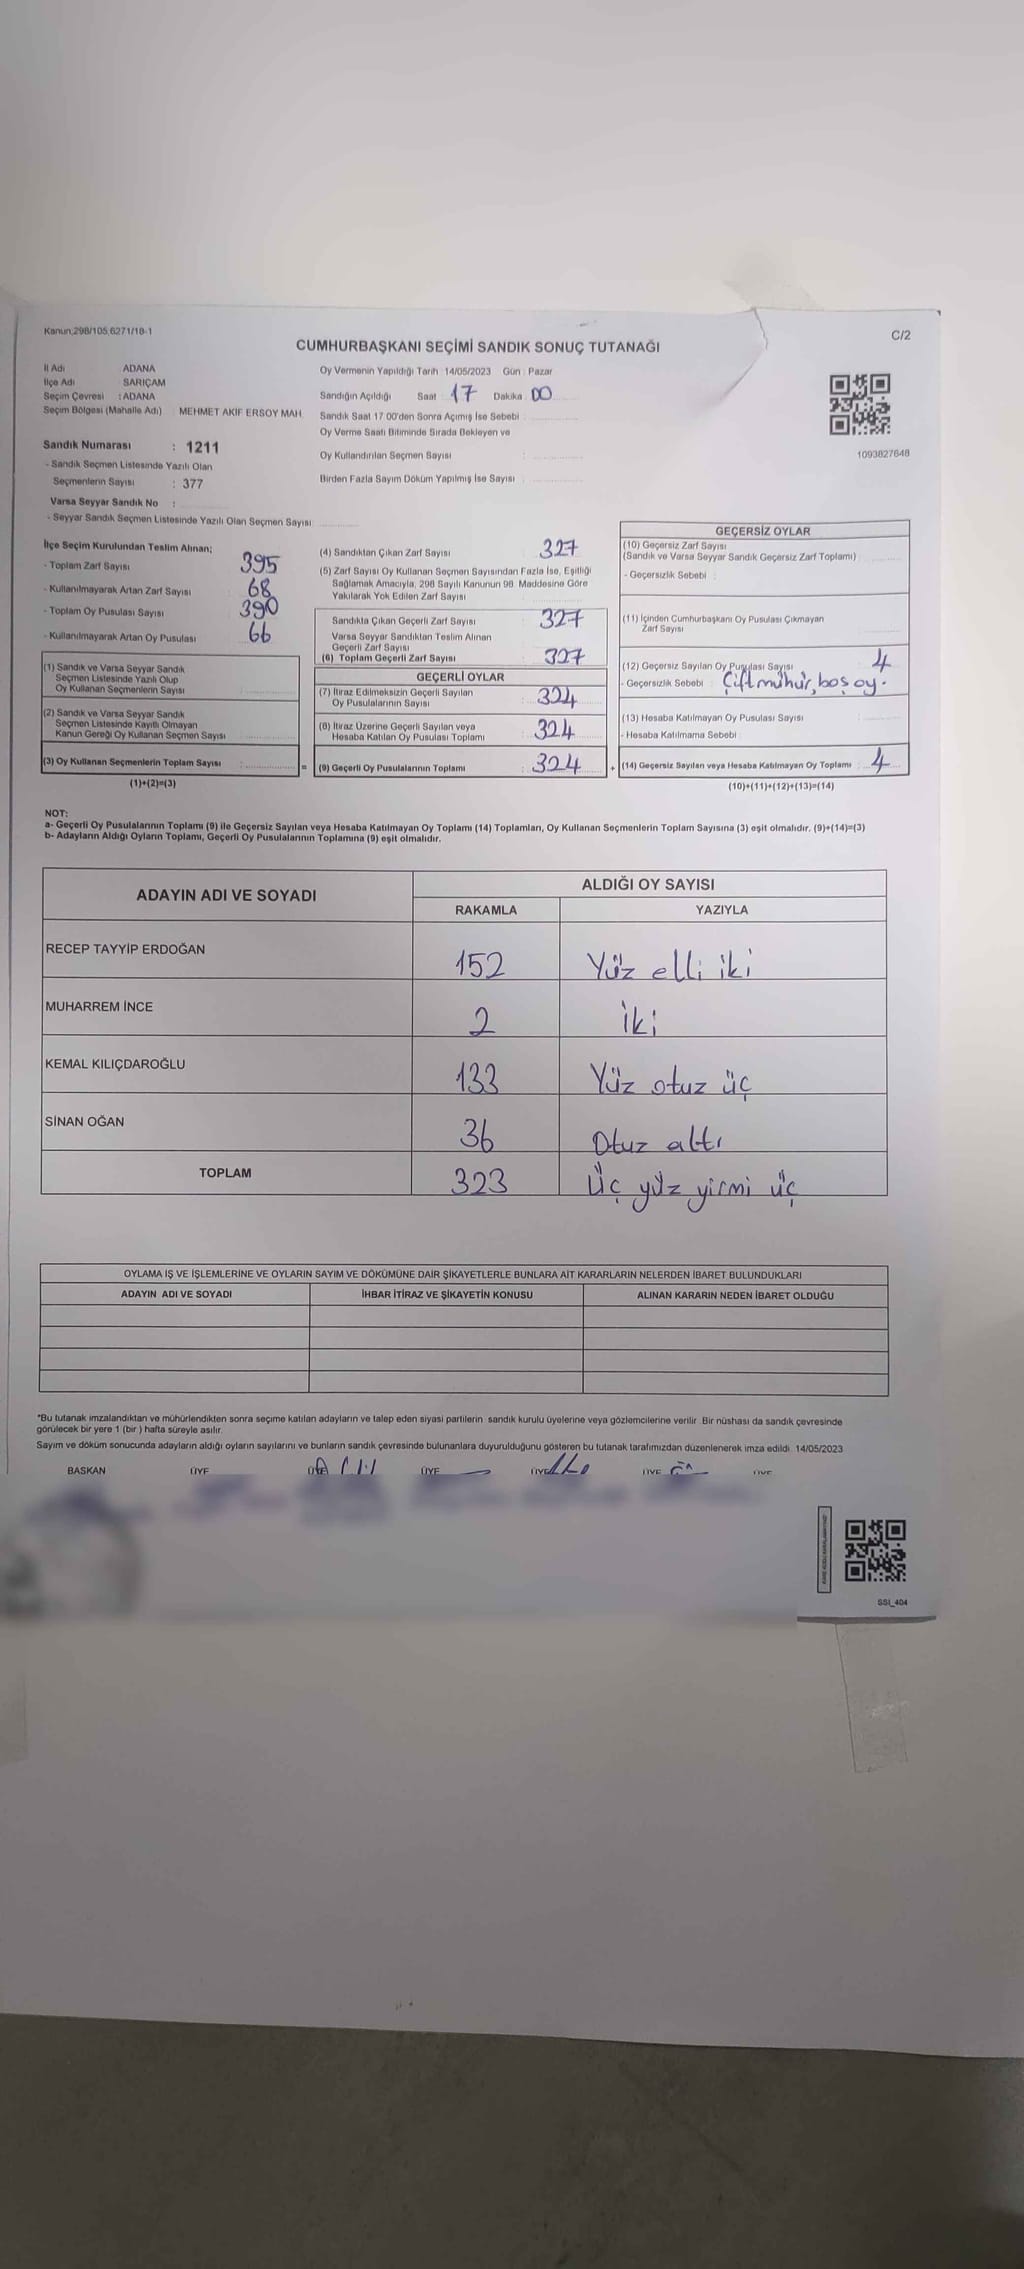 Kanun;298/105,6271/18-1
C/2
CUMHURBAŞKANI SEÇİMİ SANDIK SONUÇ TUTANAĞI
İl Adı ADANA
İlçe Adı SARIÇAM
Seçim Çevresi : ADANA
Seçim Bölgesi (Mahalle Adı) : MEHMET AKİF ERSOY MAH.
Sandık Numarası : 1211
- Sandık Seçmen Listesinde Yazılı Olan
Seçmenlerin Sayısı : 377
Varsa Seyyar Sandık No :
- Seyyar Sandık Seçmen Listesinde Yazılı Olan Seçmen Sayısı:
Oy Vermenin Yapıldığı Tarih : 14/05/2023 Gün : Pazar
Sandığın Açıldığı Saat : 17 Dakika : 00
Sandık Saat 17:00'den Sonra Açımış İse Sebebi :
Oy Verme Saati Bitiminde Sırada Bekleyen ve
Oy Kullandırılan Seçmen Sayısı :
Birden Fazla Sayım Döküm Yapılmış İse Sayısı :
1093827648
İlçe Seçim Kurulundan Teslim Alınan;
- Toplam Zarf Sayısı 395
- Kullanılmayarak Artan Zarf Sayısı 68
- Toplam Oy Pusulası Sayısı 390
- Kullanılmayarak Artan Oy Pusulası 66
(1) Sandık ve Varsa Seyyar Sandık
Seçmen Listesinde Yazılı Olup
Oy Kullanan Seçmenlerin Sayısı :
(2) Sandık ve Varsa Seyyar Sandık
Seçmen Listesinde Kayıtlı Olmayan
Kanun Gereği Oy Kullanan Seçmen Sayısı :
(3) Oy Kullanan Seçmenlerin Toplam Sayısı :
(1)+(2)=(3)
(4) Sandıktan Çıkan Zarf Sayısı : 327
(5) Zarf Sayısı Oy Kullanan Seçmen Sayısından Fazla İse, Eşitliği
Sağlamak Amacıyla, 298 Sayılı Kanunun 98. Maddesine Göre
Yakılarak Yok Edilen Zarf Sayısı :
Sandıkta Çıkan Geçerli Zarf Sayısı : 327
Varsa Seyyar Sandıktan Teslim Alınan
Geçerli Zarf Sayısı :
(6) Toplam Geçerli Zarf Sayısı : 327
GEÇERLİ OYLAR
(7) İtiraz Edilmeksizin Geçerli Sayılan
Oy Pusulalarının Sayısı : 324
(8) İtiraz Üzerine Geçerli Sayılan veya
Hesaba Katılan Oy Pusulası Toplamı : 324
= (9) Geçerli Oy Pusulalarının Toplamı : 324 +
GEÇERSİZ OYLAR
(10) Geçersiz Zarf Sayısı
(Sandık ve Varsa Seyyar Sandık Geçersiz Zarf Toplamı) :
- Geçersizlik Sebebi :
(11) İçinden Cumhurbaşkanı Oy Pusulası Çıkmayan
Zarf Sayısı :
(12) Geçersiz Sayılan Oy Pusulası Sayısı : 4
- Geçersizlik Sebebi : Çift mühür, boş oy.
(13) Hesaba Katılmayan Oy Pusulası Sayısı :
- Hesaba Katılmama Sebebi :
(14) Geçersiz Sayılan veya Hesaba Katılmayan Oy Toplamı : 4
(10)+(11)+(12)+(13)=(14)
NOT:
a- Geçerli Oy Pusulalarının Toplamı (9) ile Geçersiz Sayılan veya Hesaba Katılmayan Oy Toplamı (14) Toplamları, Oy Kullanan Seçmenlerin Toplam Sayısına (3) eşit olmalıdır. (9)+(14)=(3)
b- Adayların Aldığı Oyların Toplamı, Geçerli Oy Pusulalarının Toplamına (9) eşit olmalıdır.
ADAYIN ADI VE SOYADI ALDIĞI OY SAYISI
RAKAMLA YAZIYLA
RECEP TAYYİP ERDOĞAN 152 Yüz elli iki
MUHARREM İNCE 2 iki
KEMAL KILIÇDAROĞLU 133 Yüz otuz üç
SİNAN OĞAN 36 Otuz altı
TOPLAM 323 Üç yüz yirmi üç
OYLAMA İŞ VE İŞLEMLERİNE VE OYLARIN SAYIM VE DÖKÜMÜNE DAİR ŞİKAYETLERLE BUNLARA AİT KARARLARIN NELERDEN İBARET BULUNDUKLARI
ADAYIN ADI VE SOYADI İHBAR İTİRAZ VE ŞİKAYETİN KONUSU ALINAN KARARIN NEDEN İBARET OLDUĞU
*Bu tutanak imzalandıktan ve mühürlendikten sonra seçime katılan adayların ve talep eden siyasi partilerin sandık kurulu üyelerine veya gözlemcilerine verilir. Bir nüshası da sandık çevresinde
görülecek bir yere 1 (bir) hafta süreyle asılır.
Sayım ve döküm sonucunda adayların aldığı oyların sayılarını ve bunların sandık çevresinde bulunanlara duyurulduğunu gösteren bu tutanak tarafımızdan düzenlenerek imza edildi. 14/05/2023
BAŞKAN ÜYE ÜYE ÜYE ÜYE ÜYE ÜYE
SSI_404